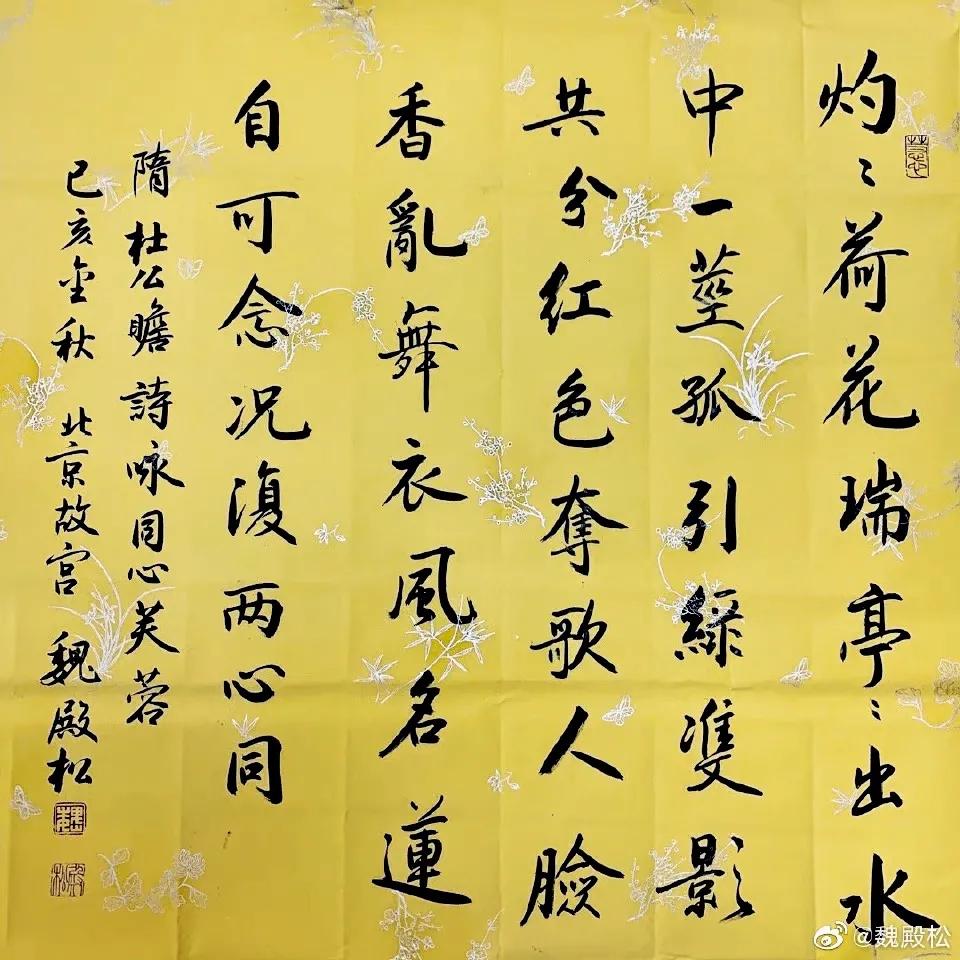 灼〻荷花瑞亭〻出水
中一莖孤引綠雙影
共分红色奪歌人臉
香亂舞衣風名蓮
自可念况復两心同
隋杜公瞻詩咏同心芙蓉
己亥金秋 北京故宫 魏殿松
殿松
@魏殿松